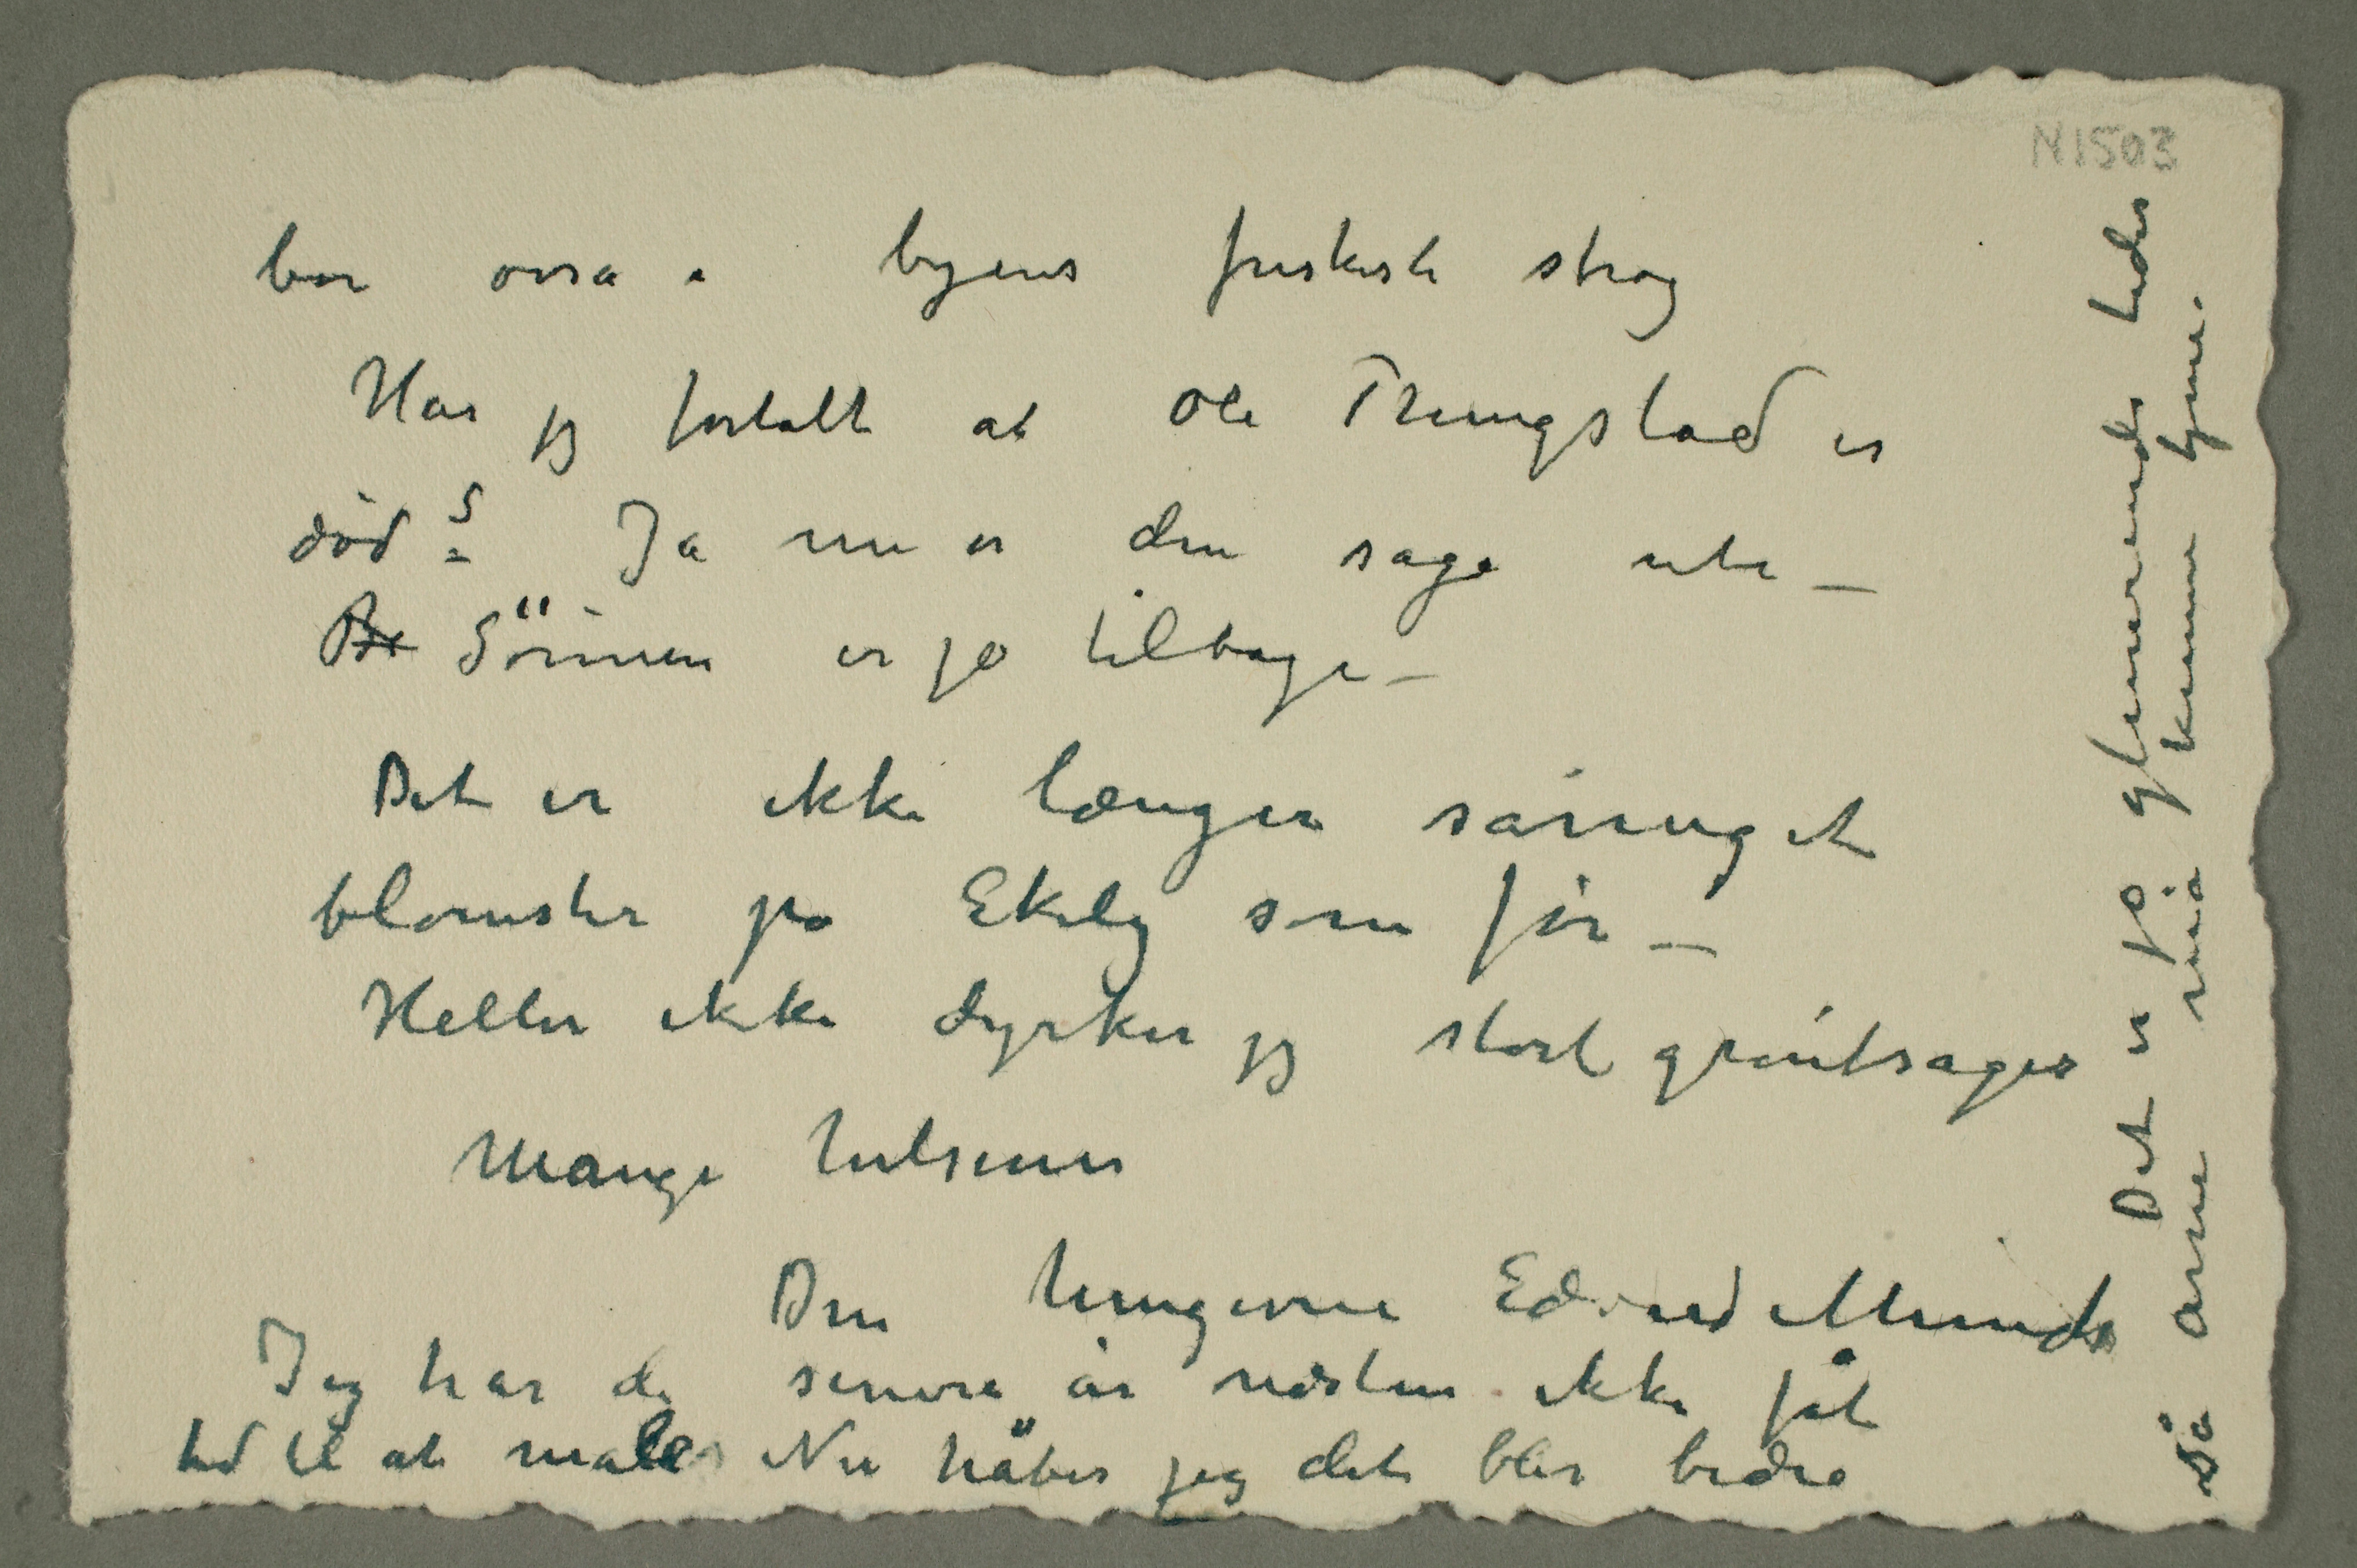 N1503
bor osså i byens friskeste strøg
Har jeg fortalt at Ole Thingstad er
død? Ja nu er den saga ute –
Be Sönnen er jo tilbage –
Det er ikke længer såmeget
blomster på Ekely som før –
Heller ikke dyrker jeg stort grøntsager
Mange hilsener
Din hengivne Edvard Munch
Jeg har de senere år næsten ikke fåt
tid til at male Nu håber jeg det blir bedre
Det er jo glimrende tider
så arne må kunne tjene.